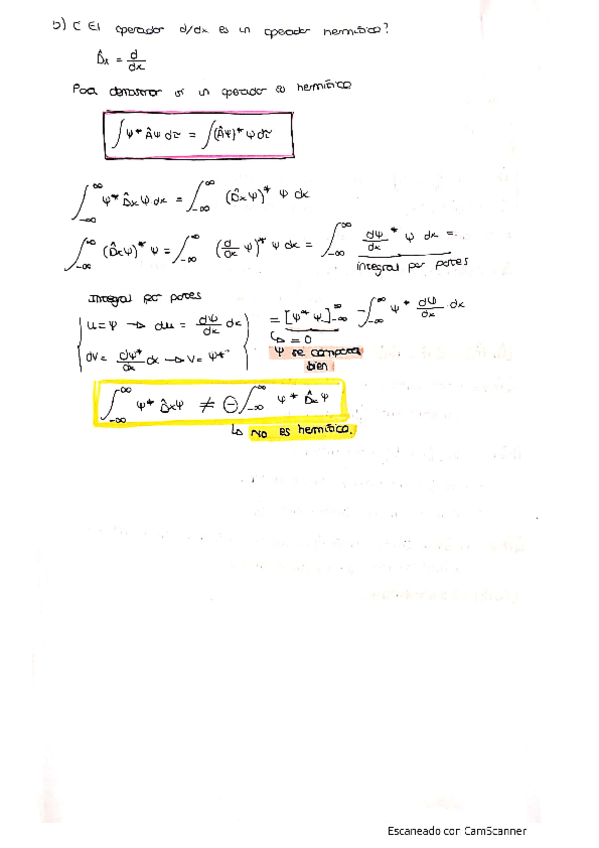 b) ¿ El operador d/dx es un operador hermítico?
D̂x = d/dx
Para demostrar si un operador es hermítico
∫ψ* Âψ dτ = ∫(Âψ)* ψ dτ
∫_{-∞}^{∞} ψ* D̂xψ dx = ∫_{-∞}^{∞} (D̂xψ)* ψ dx
∫_{-∞}^{∞} (D̂xψ)* ψ = ∫_{-∞}^{∞} (d/dx ψ)* ψ dx = ∫_{-∞}^{∞} dψ*/dx ψ dx =...
integral por partes
Integral por partes
u=ψ → du = dψ/dx dx
dv= dψ*/dx dx → v= ψ*
= [ψ* ψ]_{-∞}^{∞} - ∫_{-∞}^{∞} ψ* dψ/dx dx
↳ = 0
ψ se comporta
bien
∫_{-∞}^{∞} ψ* D̂xψ ≠ ⊖∫_{-∞}^{∞} ψ* D̂xψ
↳ No es hermítico.
Escaneado con CamScanner